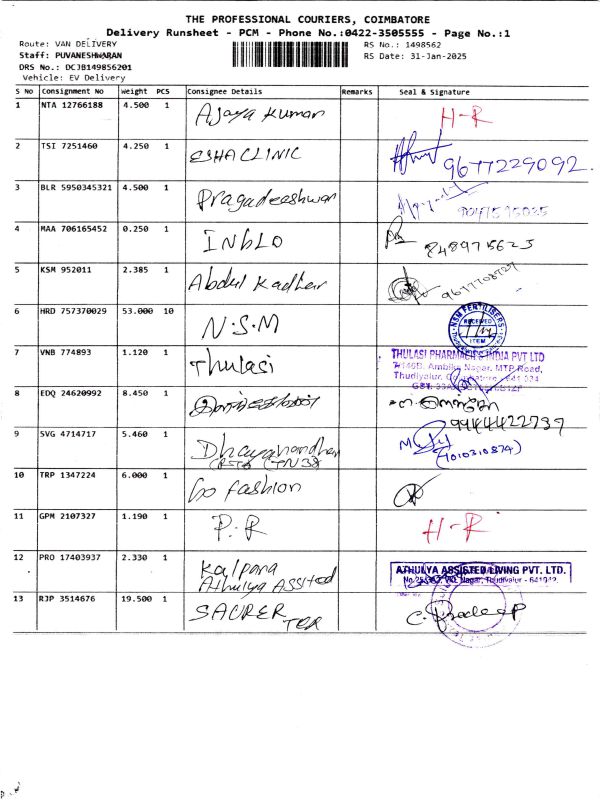 THE PROFESSIONAL COURIERS, COIMBATORE
Delivery Runsheet - PCM - Phone No.:0422-3505555 - Page No.:1
Route: VAN DELIVERY
RS No.: 1498562
Staff: PUVANESHWARAN
RS Date: 31-Jan-2025
DRS No.: DCJB149856201
Vehicle: EV Delivery
S No Consignment No Weight PCS Consignee Details Remarks Seal & Signature
1 NTA 12766188 4.500 1 Ajaya Kumar H-R
2 TSI 7251460 4.250 1 ESHA CLINIC 9677229092.
3 BLR 5950345321 4.500 1 Pragadeeshwar
4 MAA 706165452 0.250 1 INGLO 8489715623
5 KSM 952011 2.385 1 Abdul Kadhar
6 HRD 757370029 53.000 10 N.S.M NSM FERTILISERS RECEIVED ITEM
7 VNB 774893 1.120 1 Thulasi THULASI PHARMACIES INDIA PVT LTD
Ambika Nagar, MTP Road,
Thudiyalur,
8 EDQ 24620992 8.450 1
9944422737
9 SVG 4714717 5.460 1 Dhayanandhan
(RSTO (TN38 (7010310874)
10 TRP 1347224 6.000 1 Go fashion
11 GPM 2107327 1.190 1 P.R H-R
12 PRO 17403937 2.330 1 Kalpana ATHULYA ASSISTED LIVING PVT. LTD.
Athulya ASSited Nagar, Thudiyalur - 641
13 RJP 3514676 19.500 1 SAURER C. Pradeep